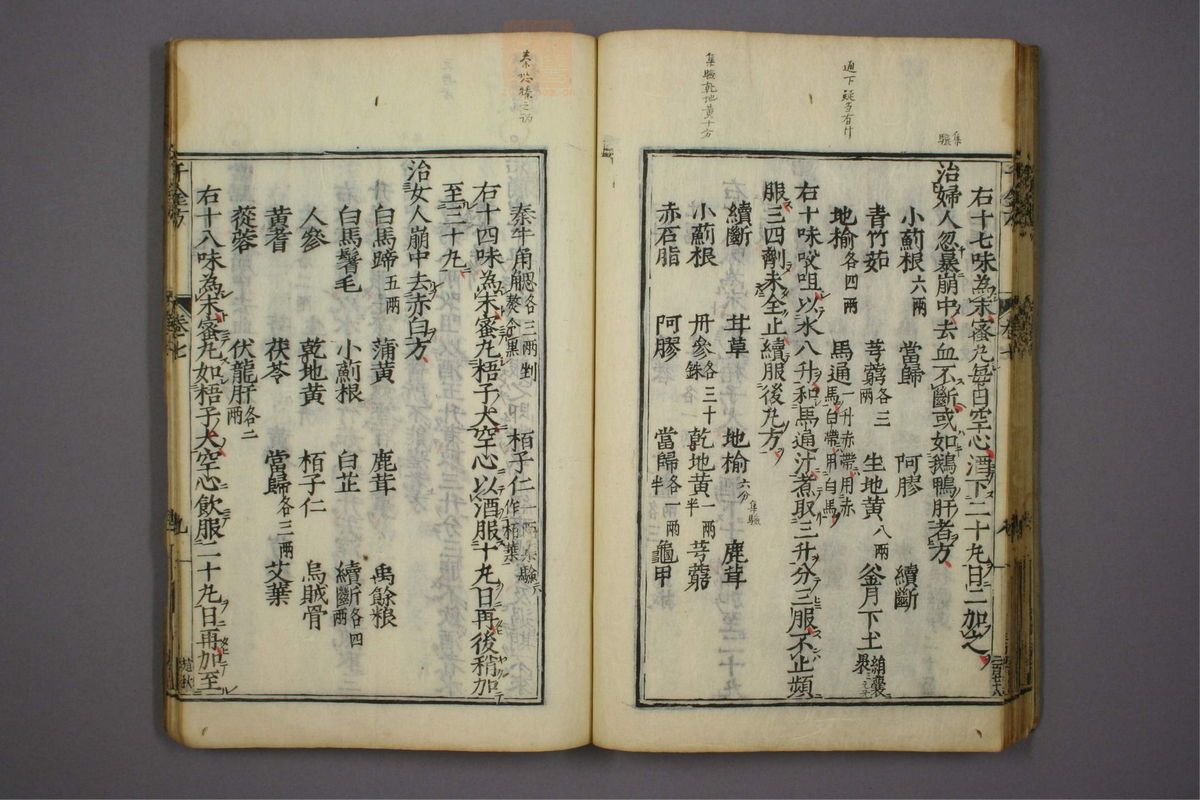 集驗乾地黃十分
集驗
右十七味為末蜜丸每日空心酒下二十丸日二加之
治婦人忽暴崩中去血不斷或如鵝鴨肝者方
小薊根六兩 當歸 阿膠 續斷
青竹茹 芎藭各三兩 生地黃八兩 釜月下土絹裹
地榆各四兩 馬通一升赤帶用赤馬白帶用白馬
右十味㕮咀以水八升和馬通汁煮取三升分三服不止頻
服三四劑未全止續服後丸方
續斷 甘草 地榆六分集驗 鹿茸
小薊根 丹參各三十銖 乾地黃一兩半 芎藭
赤石脂 阿膠 當歸各一兩半 龜甲
秦牛角䚡各三兩剉熬令黑 栢子仁一兩集驗作柏葉
右十四味為末蜜丸梧子大空心以酒服十丸日再後稍加
至三十丸
治女人崩中去赤白方
白馬蹄五兩 蒲黃 鹿茸 禹餘粮
白馬鬐毛 小薊根 白芷 續斷各四兩
人參 乾地黃 栢子仁 烏賊骨
黃耆 茯苓 當歸各三兩 艾葉
蓯蓉 伏龍肝各二兩
右十八味為末蜜丸如梧子大空心飲服二十丸日再加至
千金方 卷七 九